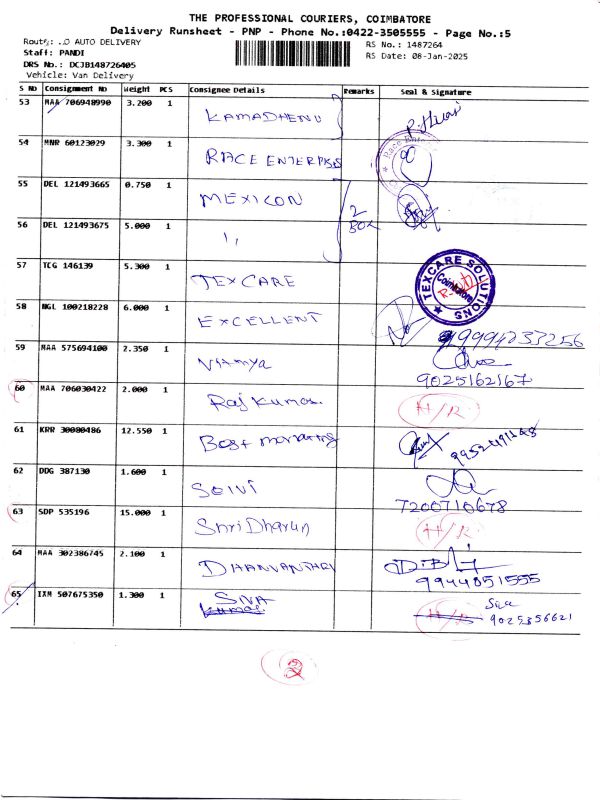 THE PROFESSIONAL COURIERS, COIMBATORE
Delivery Runsheet - PNP - Phone No.:0422-3505555 - Page No.:5
AUTO DELIVERY
RS No.: 1487264
Staff: PANDI
RS Date: 08-Jan-2025
DRS No.: DCJB148726405
Vehicle: Van Delivery
S NO Consignment NO Weight PCS Consignee Details Remarks Seal & Signature
53 MAA 706948990 3.200 1 KAMADHENU
54 MNR 60123029 3.300 1 RACE ENTERPRISES
55 DEL 121493665 0.750 1 MEXICON 2 BOX
56 DEL 121493675 5.000 1 "
57 TCG 146139 5.300 1 TEXCARE TEXCARE SOLUTIONS Coimbatore
58 NGL 100218228 6.000 1 EXCELLENT
59 MAA 575694100 2.350 1 9025162167
60 MAA 706030422 2.000 1 Raj Kumar. H/R
61 KRR 30080486 12.550 1 Best
62 DDG 387130 1.600 1 7200710678
63 SDP 535196 15.000 1 Shri Dharun H/R
64 MAA 302386745 2.100 1 DHANVANTARI 9944051555
65 IXM 507675350 1.300 1 SIVA Kumar. H/R Siva 9025356621
2